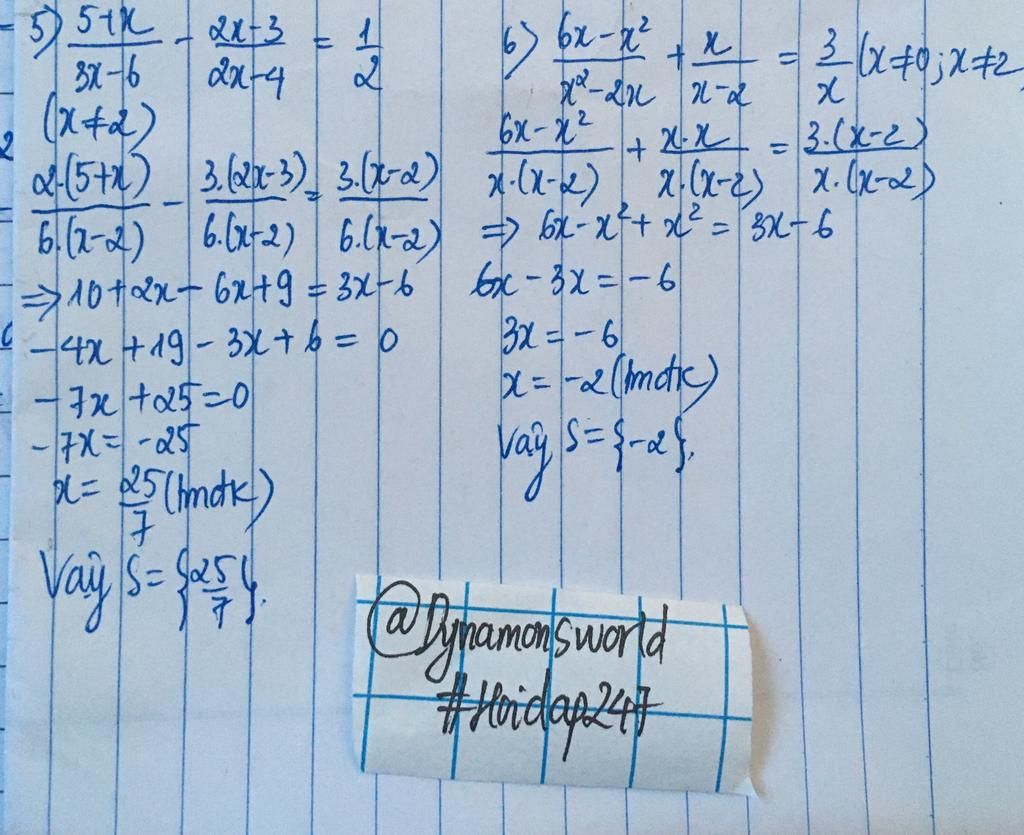 5) \frac{5+x}{3x-6} - \frac{2x-3}{2x-4} = \frac{1}{2}
(x≠2)
\frac{2.(5+x)}{6.(x-2)} - \frac{3.(2x-3)}{6.(x-2)} = \frac{3.(x-2)}{6.(x-2)}
=> 10+2x-6x+9 = 3x-6
-4x+19-3x+6 = 0
-7x+25=0
-7x=-25
x= \frac{25}{7} (tmđk)
Vậy S={\frac{25}{7}}.
6) \frac{6x-x²}{x²-2x} + \frac{x}{x-2} = \frac{3}{x} (x≠0; x≠2
\frac{6x-x²}{x.(x-2)} + \frac{x.x}{x.(x-2)} = \frac{3.(x-2)}{x.(x-2)}
=> 6x-x²+x² = 3x-6
6x-3x=-6
3x=-6
x=-2 (tmđk)
Vậy S={-2}.
@Dynamonsworld
#Hoidap247